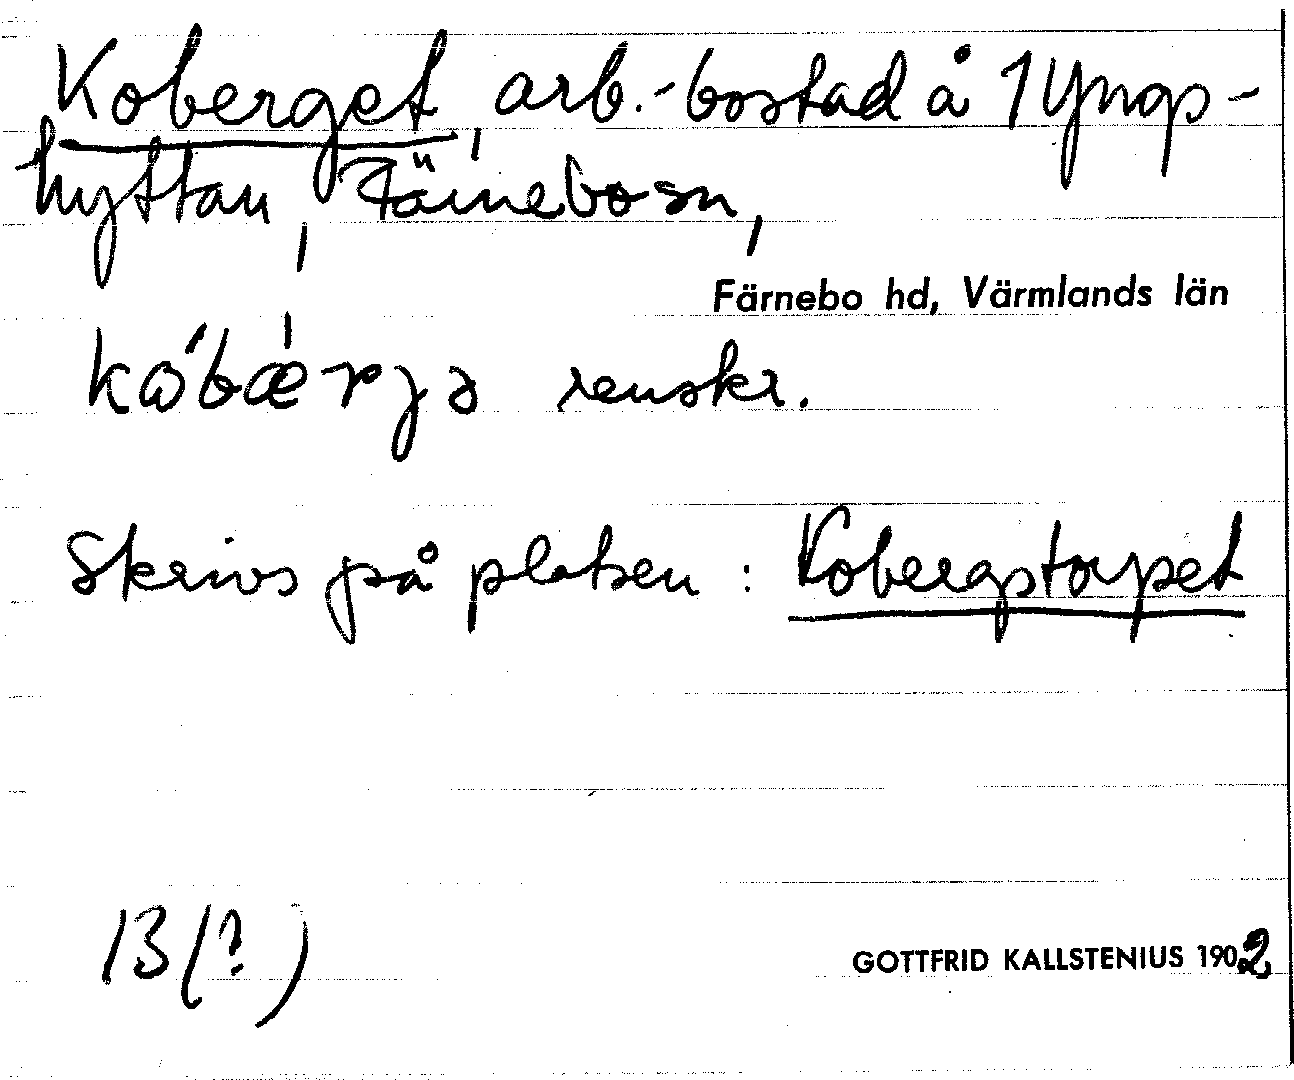 Koberget, arb.-bostad å 1 Yngs-
hyttan, Färnebo sn,
Färnebo hd, Värmlands län
renskr.
Skrivs på platsen: Kobergstorpet
13 (?)
GOTTFRID KALLSTENIUS 1902